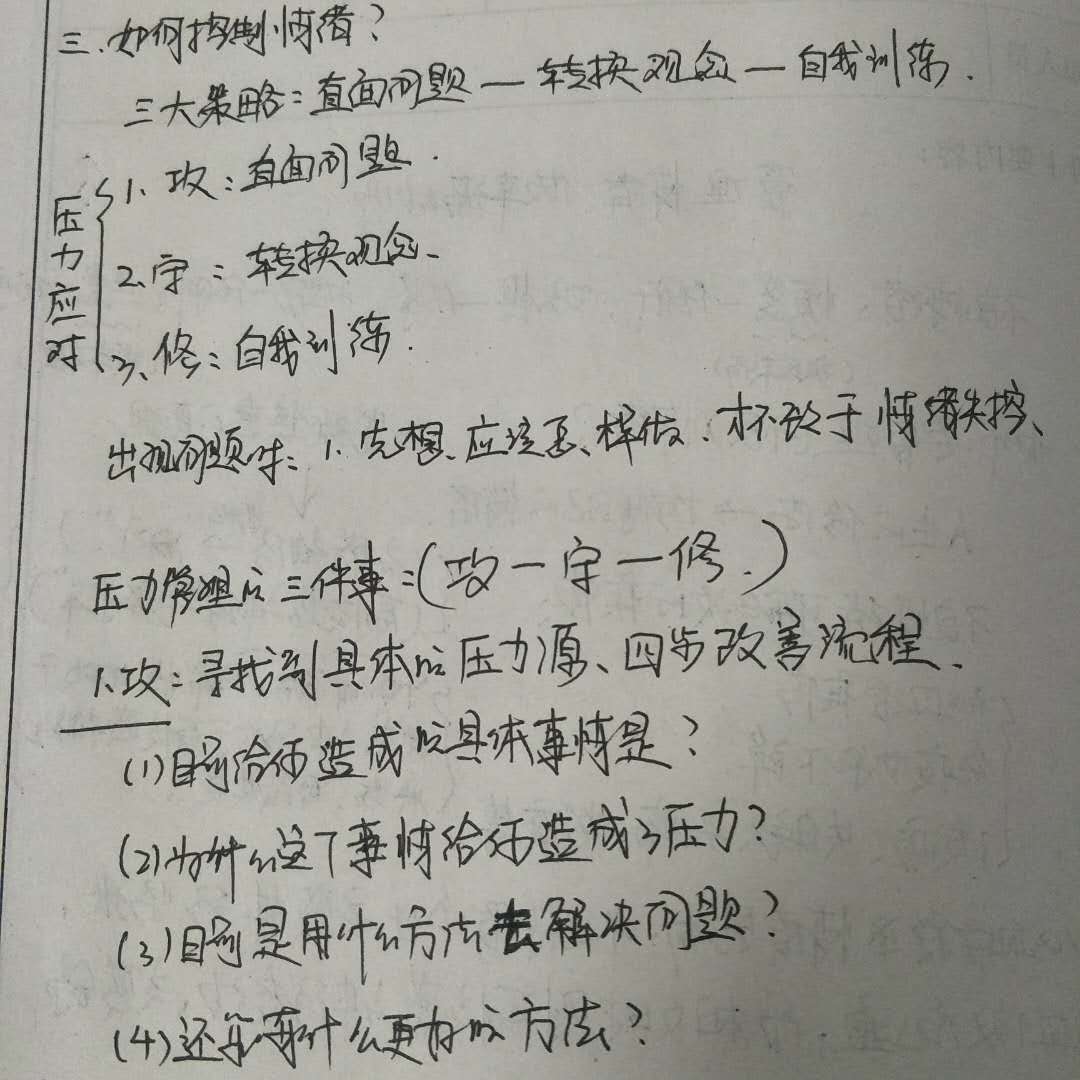 三.如何控制情绪?
三大策略:直面问题—转换观念—自我训练.
压力应对
1、攻:直面问题.
2、守:转换观念、
3、修:自我训练.
出现问题时:1、先想、应该怎样做、才不致于情绪失控、
压力管理的三件事:(攻—守—修.)
1、攻:寻找到具体的压力源、四步改善流程、
(1)目前给你造成的具体事情是?
(2)为什么这个事情给你造成了压力?
(3)目前是用什么方法去解决问题?
(4)还有什么更好的方法?